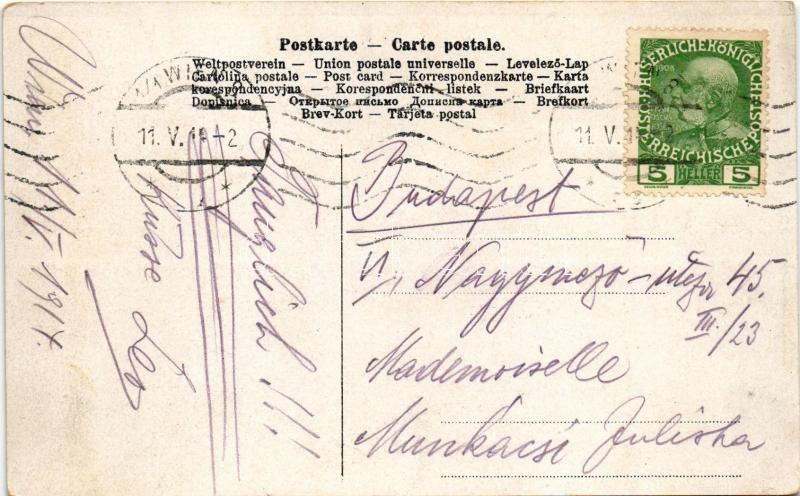 Postkarte — Carte postale.
Weltpostverein — Union postale universelle — Levelező-Lap
Cartolina postale — Post card — Korrespondenzkarte — Karta
korespondencyjna — Korespondenční listek — Briefkaart
Dopisnica — Открытое письмо Дописна карта — Brefkort
Brev-Kort — Tarjeta postal
11. V. 14-2
11. V. 1
KAISERLICHE KÖNIGLICHE
ÖSTERREICHISCHE POST
1908
5 HELLER 5
Budapest
VI, Nagymező-utcza 45.
III/23
Mademoiselle
Munkácsi Juliska
1914.
Küsse Leo